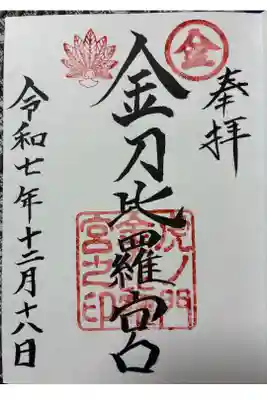 金
奉拝
金刀比羅宮
虎ノ門
金刀比羅
宮之印
令和七年十二月十八日